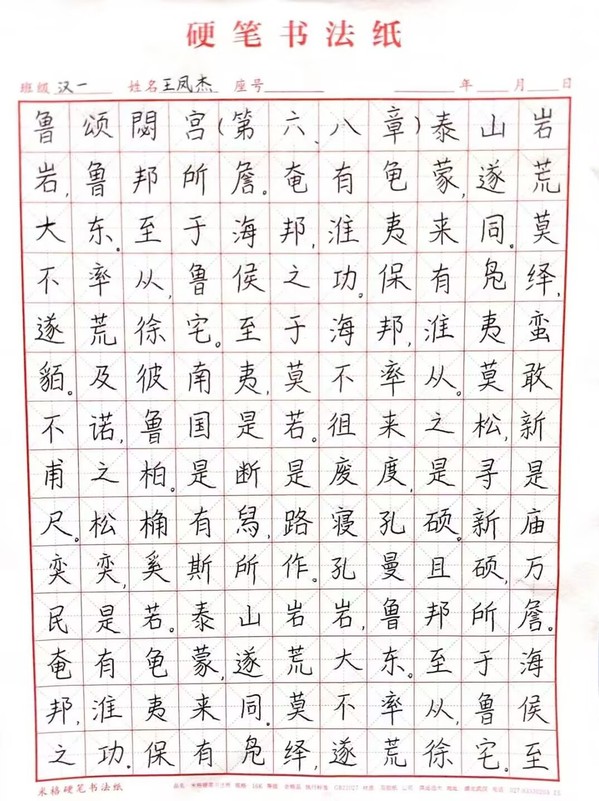 硬笔书法纸
班级 汉一 姓名 王凤杰 座号 年 月 日
鲁颂閟宫(第六、八章)泰山岩
岩,鲁邦所詹。奄有龟蒙,遂荒
大东。至于海邦,淮夷来同。莫
不率从,鲁侯之功。保有凫绎,
遂荒徐宅。至于海邦,淮夷蛮
貊。及彼南夷,莫不率从。莫敢
不诺,鲁国是若。徂来之松,新
甫之柏。是断是废度,是寻是
尺。松桷有舄,路寝孔硕。新庙
奕奕,奚斯所作。孔曼且硕,万
民是若。泰山岩岩,鲁邦所詹。
奄有龟蒙,遂荒大东。至于海
邦,淮夷来同。莫不率从,鲁侯
之功。保有凫绎,遂荒徐宅。至
米格硬笔书法纸